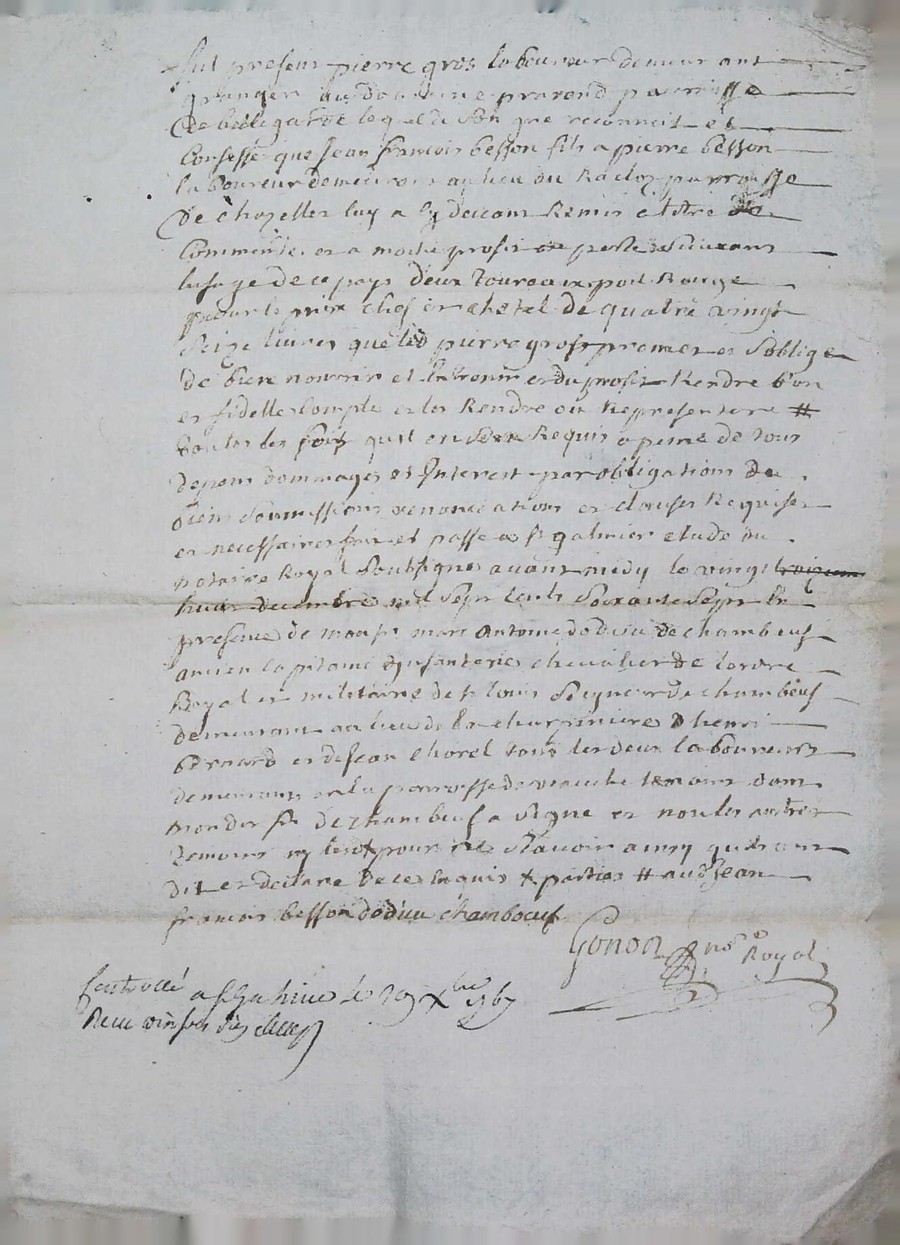 fut present pierre gros laboureur demeurant
granger au domaine parroisse
de bellegarde lequel de son gre reconnoit et
Confesse que Jean francois besson fils a pierre besson
laboureur au lieu du parroisse
de chazelles luy a Remis a titre de
Commande et a moitie profit et perte suivant
lusage de ce pays deux Toureaux poil Rouge
pour le prix chef et chetel de quatre vingt
Seize livres que led pierre gros promet et soblige
de bien nourrir et Entretenir et du profit Rendre bon
et fidelle Compte et les Rendre ou Representere #
toutes les fois quil en sera Requis a peine de tous
depens dommages et Interest par obligations de
biens soumissions renonciations et clauses Requises
et necessaires fait et passe a st galmier etude du
notaire Royal soussigne avant midy le vingt
huit decembre mil sept cents soixante sept En
presence de mons marc Antoine dodieu de chambeuf
ancien Capitaine dinfanterie chevalier de lordre
Royal et militaire de st louis seigneur de chambeuf
demeurant au lieu de la charpiniere & henri
bernard et de Jean Chorel tous les deux laboureurs
demeurants en la parroisse de temoins dont
mondit sr de chambeuf a signe et non les autres
temoins ny lesd parties
dit et declare de ce Enquis parties # aud Jean
francois besson dodieu chamboeuf
Gonon no^re Royal
Controllé a st galmier le 29 x^bre 1767
Recu